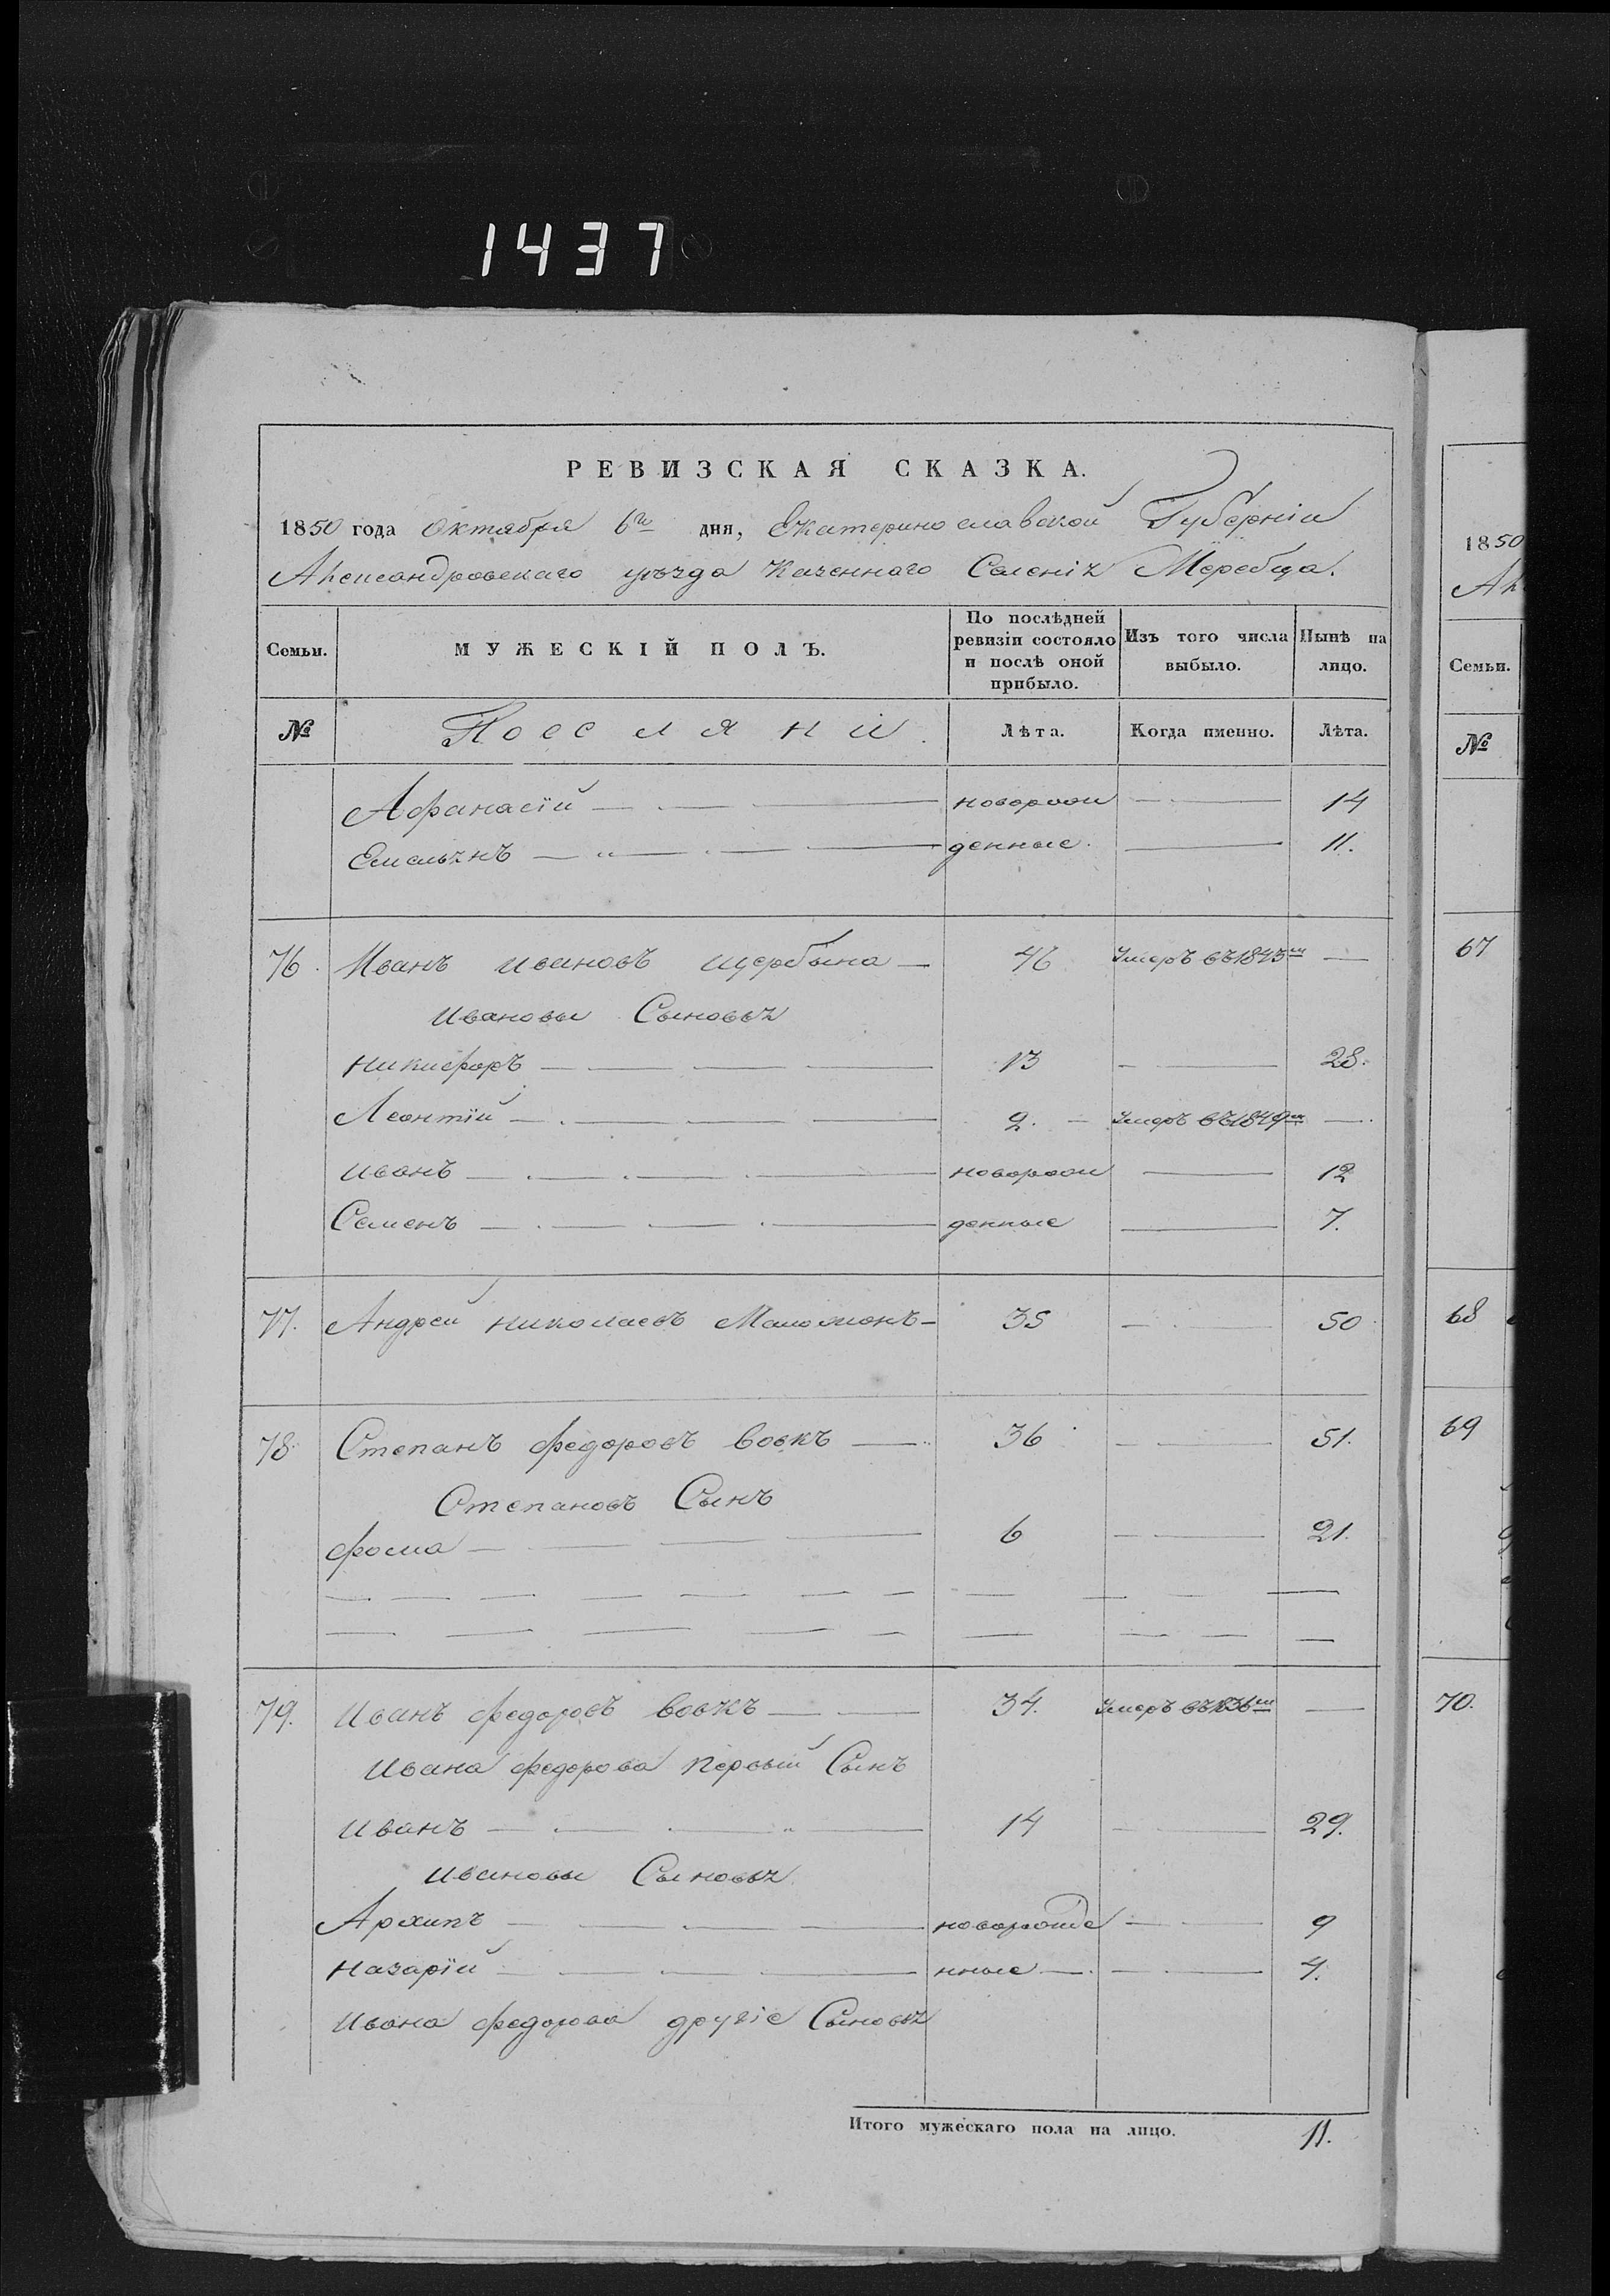 1437
РЕВИЗСКАЯ СКАЗКА.
1850 года Октября 6го дня, Екатеринославской Губерніи
Александровскаго уѣзда Казеннаго Селенія Жеребца.
Семьи. МУЖЕСКІЙ ПОЛЪ. По послѣдней ревизіи состояло и послѣ оной прибыло. Изъ того числа выбыло. Нынѣ на лицо.
№ Поселяни Лѣта. Когда именно. Лѣта.
Афанасій новорож 14
Емельянъ денные. 11.
76. Иванъ Ивановъ Щербына 46 Умеръ въ 1845м
Ивановы Сыновья
Никифоръ 13 28.
Леонтій 2. Умеръ въ 1849м
Иванъ новорож 12
Семенъ денные 7.
77. Андрей Николаевъ 35 50
78. Степанъ Федоровъ Вовкъ 36 51.
Степановъ Сынъ
Фома 6 21.
79. Иванъ Федоровъ Вовкъ 34. Умеръ въ 1836м
Ивана Федорова первый Сынъ
Иванъ 14 29.
Ивановы Сыновья
Архипъ новорожде 9
Назарій нные 4.
Ивана Федорова другіе Сыновья
Итого мужескаго пола на лицо. 11.
1850
Семьи.
№
67
68
69
70.